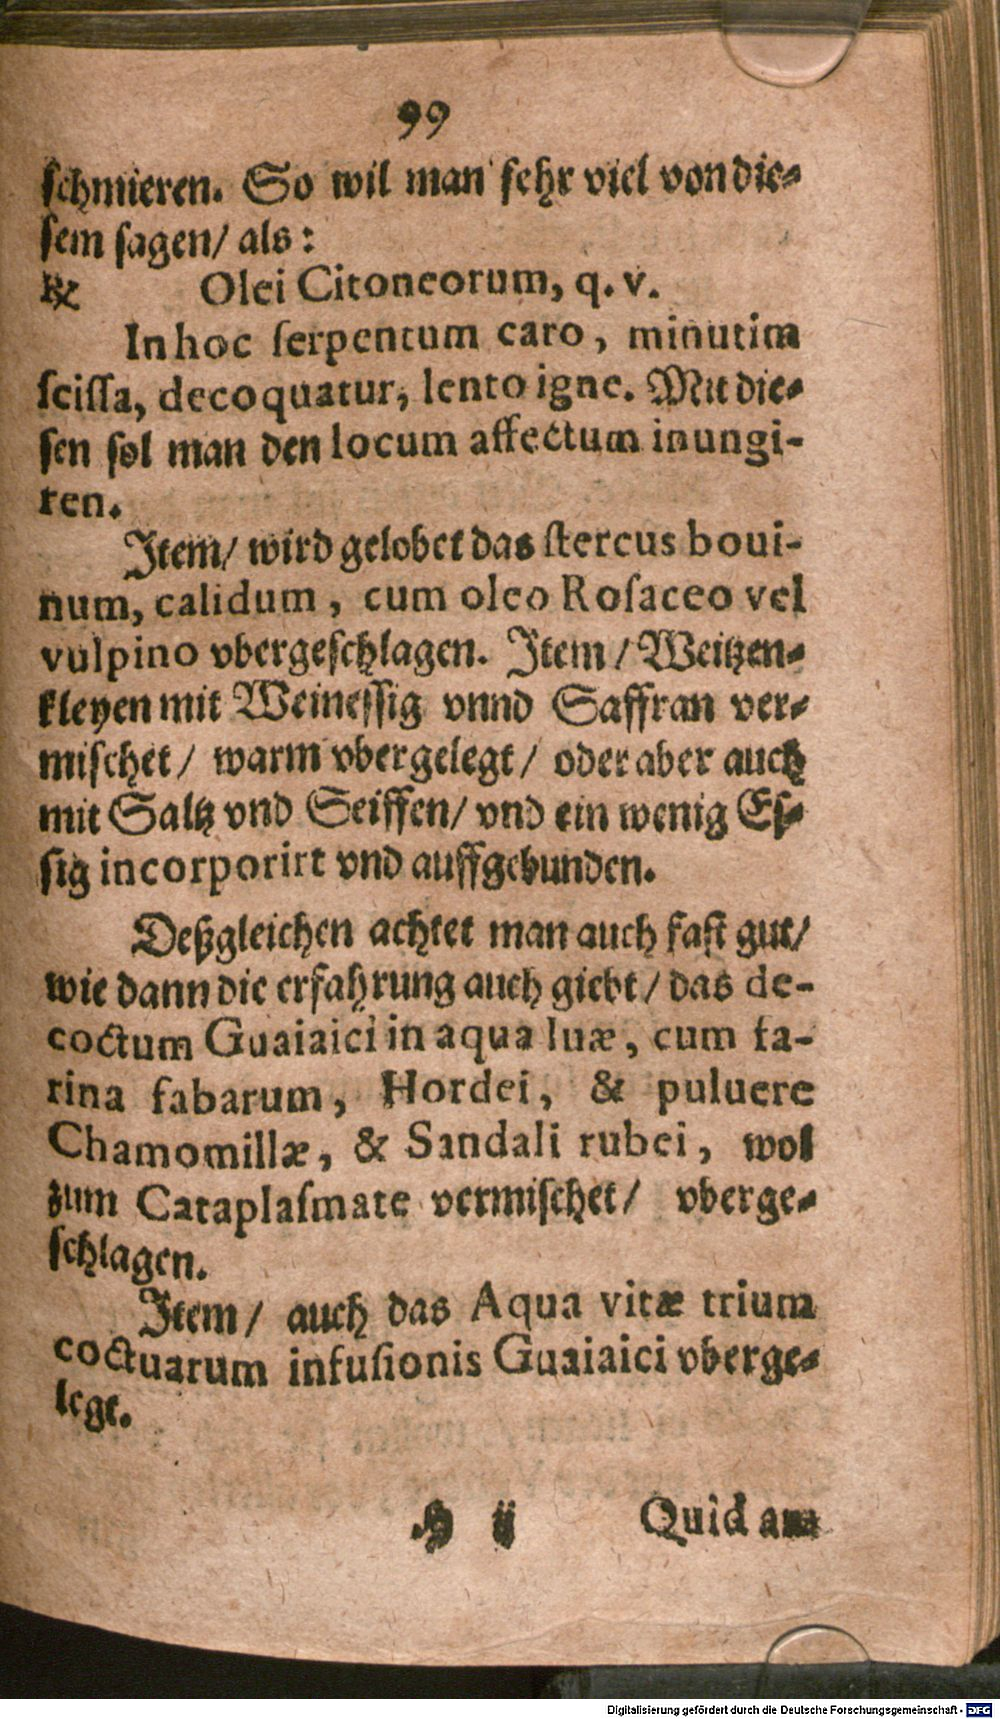 99
schmieren. So wil man sehr viel von die-
sem sagen/ als:
℞ Olei Citoneorum, q. v.
In hoc ſerpentum caro, minutim
ſciſſa, decoquatur, lento igne. Mit die-
sen sol man den locum affectum inungi-
ren.
Item/ wird gelobet das ſtercus boui-
num, calidum, cum oleo Roſaceo vel
vulpino vbergeschlagen. Item/ Weitzen-
kleyen mit Weinessig vnnd Saffran ver-
mischet/ warm vbergelegt/ oder aber auch
mit Saltz vnd Seiffen/ vnd ein wenig Es-
sig incorporirt vnd auffgebunden.
Deßgleichen achtet man auch fast gut/
wie dann die erfahrung auch giebt/ das de-
coctum Guaiaici in aqua luæ, cum fa-
rina fabarum, Hordei, & puluere
Chamomillæ, & Sandali rubei, wol
zum Cataplaſmate vermischet/ vberge-
schlagen.
Item/ auch das Aqua vitæ trium
coctuarum infuſionis Guaiaici vberge-
legt.
H ij Quidam
Digitalisierung gefördert durch die Deutsche Forschungsgemeinschaft - DFG